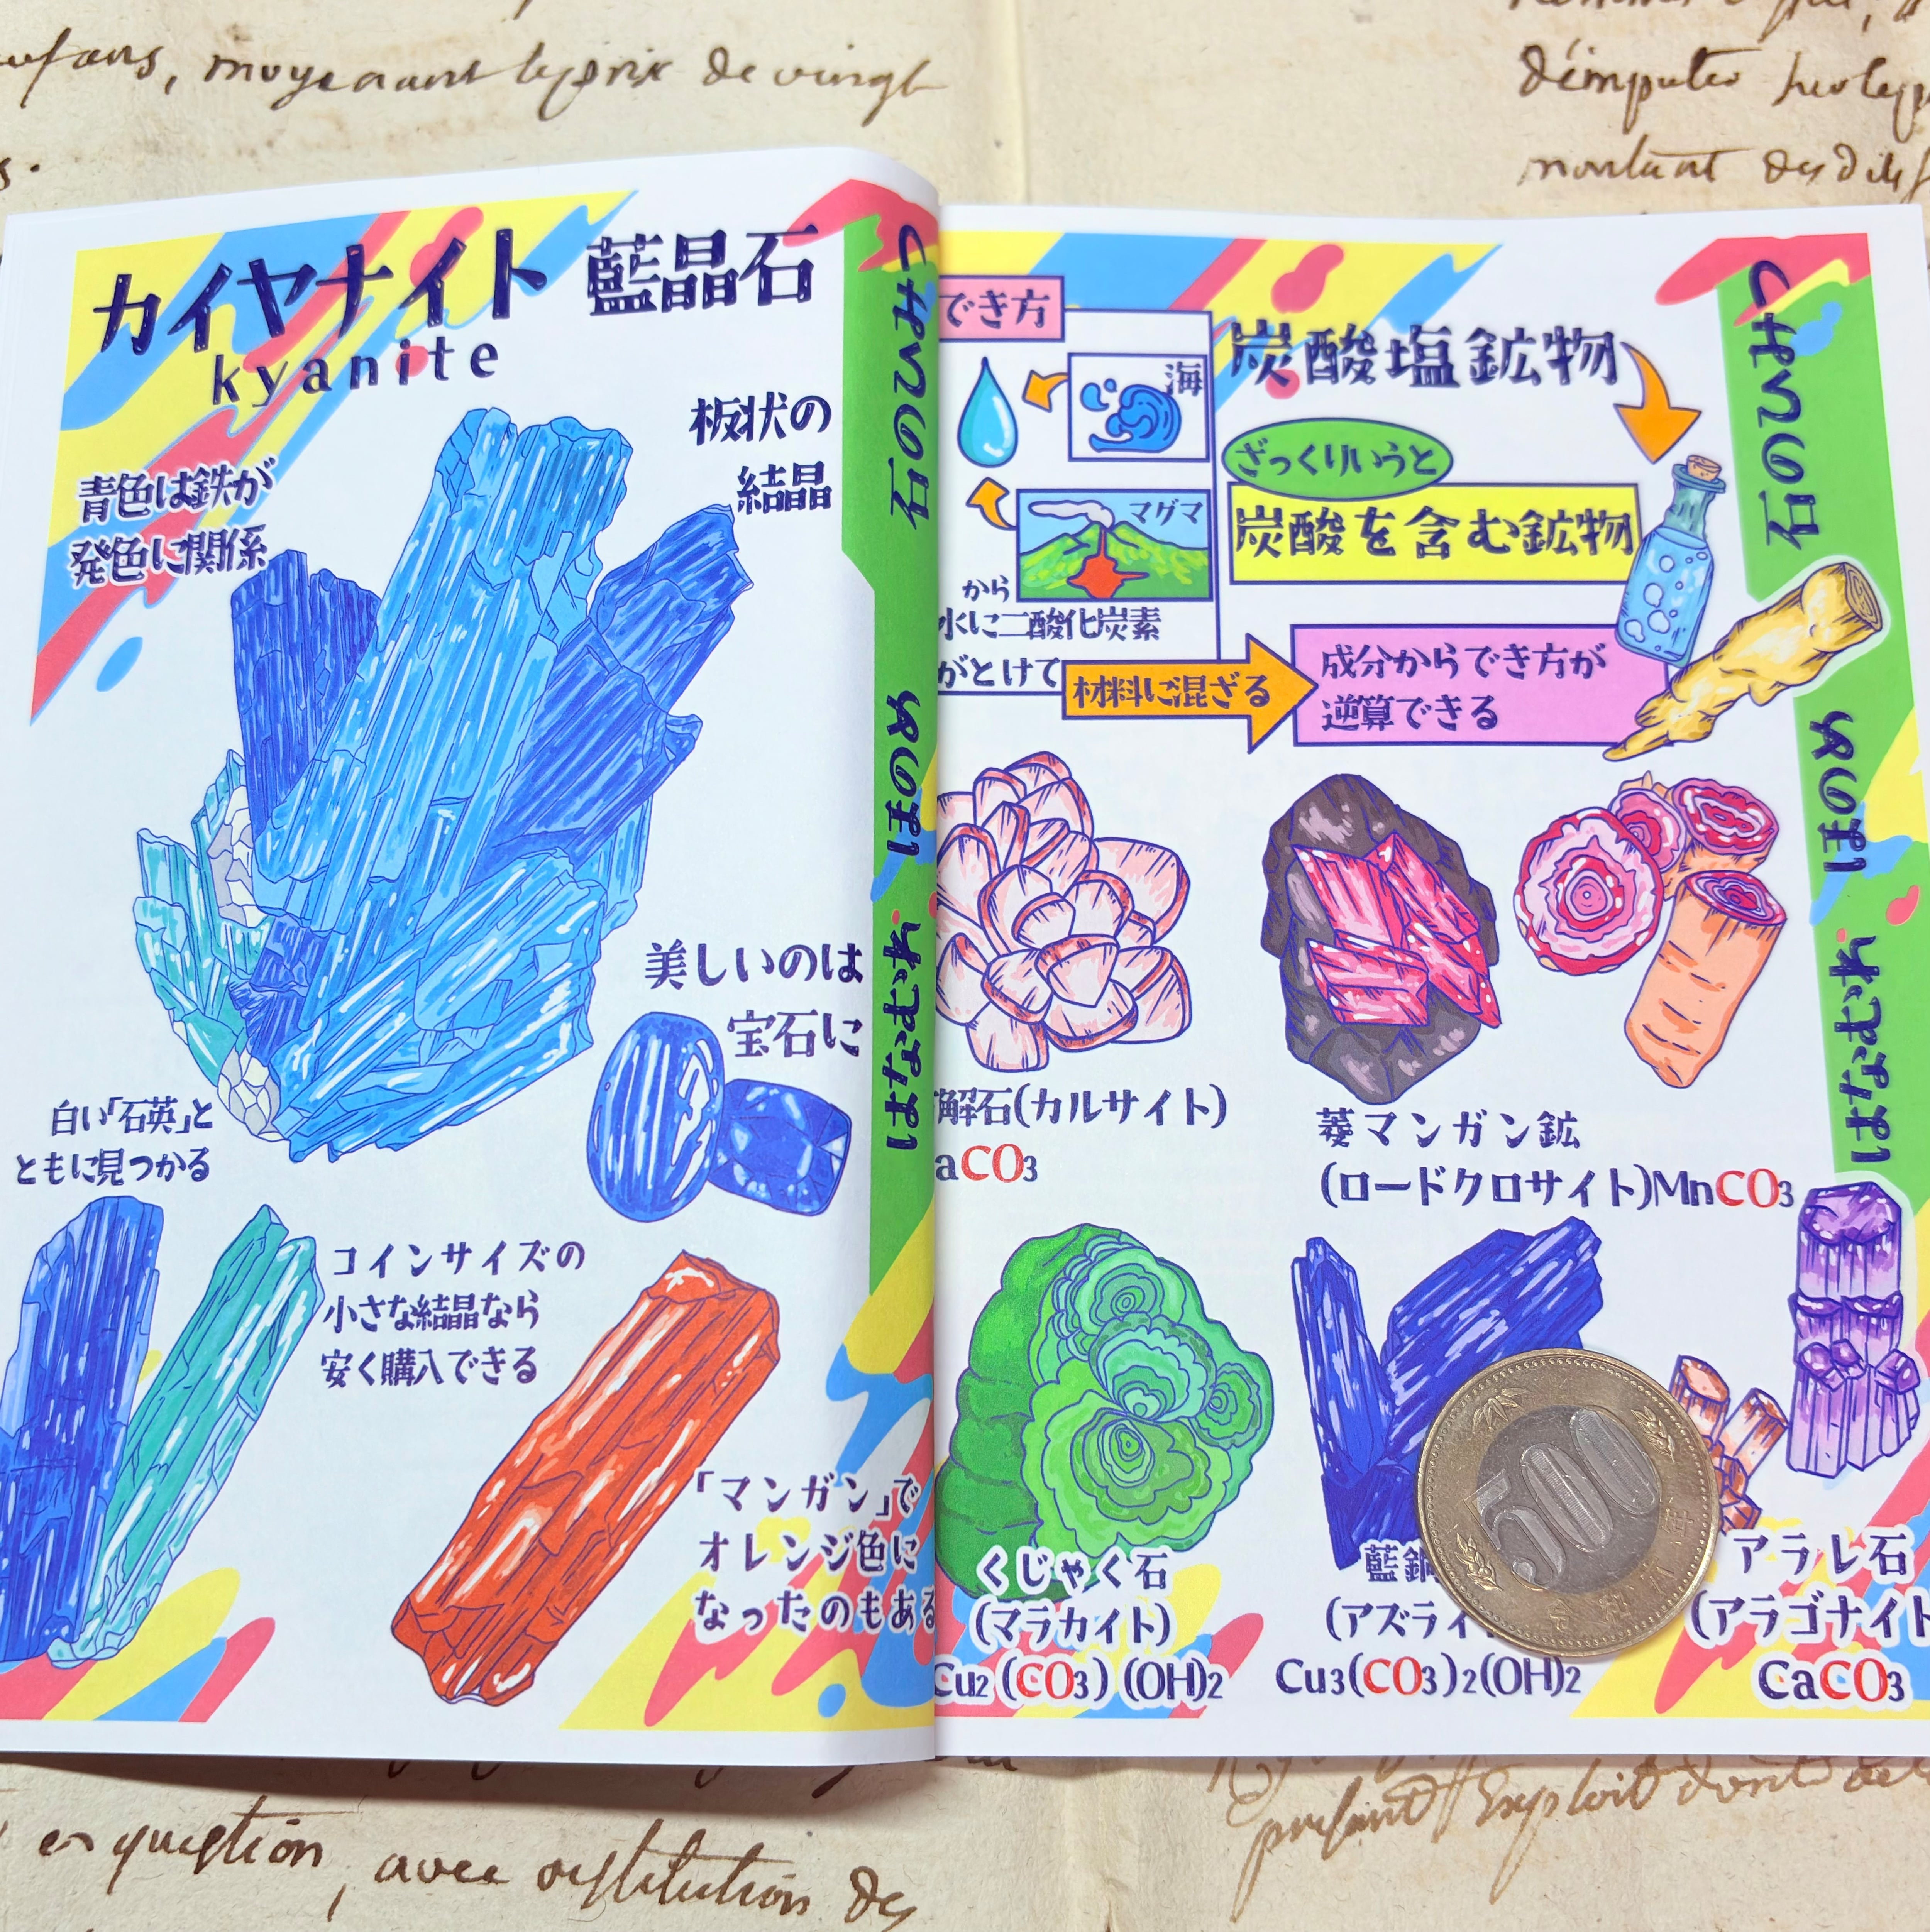 moyenant le prix de vingt
カイヤナイト 藍晶石
kyanite
板状の
結晶
青色は鉄が
発色に関係
美しいのは
宝石に
白い「石英」と
ともに見つかる
コインサイズの
小さな結晶なら
安く購入できる
「マンガン」で
オレンジ色に
なったのもある
の石
めのまえ
はなむすれ
でき方
海
マグマ
から
水に二酸化炭素
がとけて
材料に混ざる
炭酸塩鉱物
ざっくりいうと
炭酸を含む鉱物
成分からでき方が
逆算できる
解石(カルサイト)
aCO3
菱マンガン鉱
(ロードクロサイト)MnCO3
くじゃく石
(マラカイト)
Cu2(CO3)(OH)2
藍銅
(アズライ
Cu3(CO3)2(OH)2
アラレ石
(アラゴナイト
CaCO3
500
の石
en question, avec restitution des